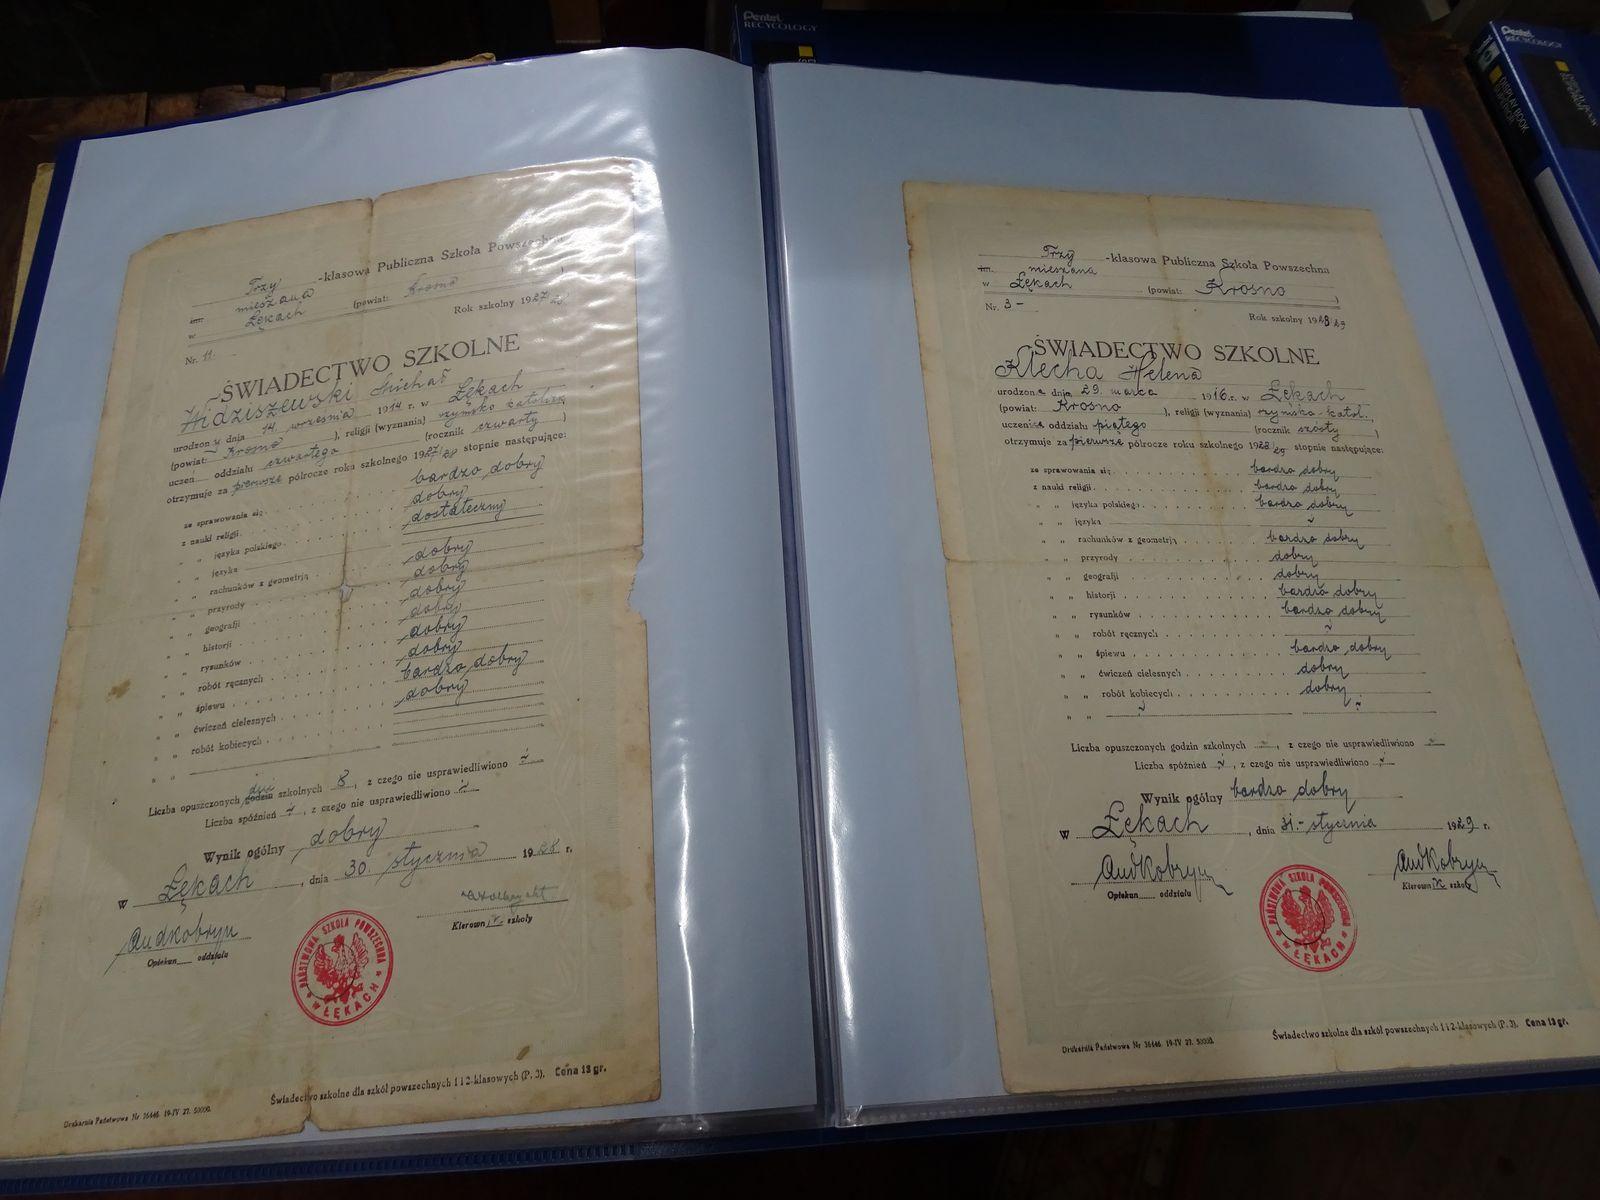 Pentel
RECYCOLOGY
Pentel
RECYCOLOGY
DISPLAY BOOK
Trzy -klasowa Publiczna Szkoła Powszechna
im. mieszana
w Łękach (powiat: Krosno )
Nr. 11. Rok szkolny 1927/28
ŚWIADECTWO SZKOLNE
Widziszewski Michał
urodzony dnia 14 września 1914 r. w Łękach
(powiat: Krosno ), religji (wyznania) rzymsko katolic.
uczeń oddziału czwartego (rocznik czwarty )
otrzymuje za pierwsze półrocze roku szkolnego 1927/28 stopnie następujące:
ze sprawowania się bardzo dobry
z nauki religji dobry
" " języka polskiego dostateczny
" " języka
" " rachunków z geometrją dobry
" " przyrody dobry
" " geografji dobry
" " historji dobry
" " rysunków dobry
" " robót ręcznych dobry
" " śpiewu bardzo dobry
" " ćwiczeń cielesnych dobry
" " robót kobiecych
" "
Liczba opuszczonych godzin dni szkolnych 8, z czego nie usprawiedliwiono
Liczba spóźnień , z czego nie usprawiedliwiono
Wynik ogólny dobry
W Łękach, dnia 30. stycznia 1928 r.
Opiekun oddziału
Kierown szkoły
PAŃSTWOWA SZKOŁA POWSZECHNA
w ŁĘKACH
Świadectwo szkolne dla szkół powszechnych 1 i 2-klasowych (P. 3). Cena 13 gr.
Drukarnia Państwowa Nr 36446. 19-IV 27. 50000.
Trzy -klasowa Publiczna Szkoła Powszechna
im. mieszana
w Łękach (powiat: Krosno )
Nr. 3 -
Rok szkolny 1928/29
ŚWIADECTWO SZKOLNE
Klecha Helena
urodzona dnia 29. marca 1916 r. w Łękach
(powiat: Krosno ), religji (wyznania) rzymska-katol.
uczenica oddziału piątego (rocznik szósty )
otrzymuje za pierwsze półrocze roku szkolnego 1928/29 stopnie następujące:
ze sprawowania się bardzo dobry
z nauki religji bardzo dobry
" " języka polskiego bardzo dobry
" " języka
" " rachunków z geometrją bardzo dobry
" " przyrody dobry
" " geografji dobry
" " historji bardzo dobry
" " rysunków bardzo dobry
" " robót ręcznych
" " śpiewu bardzo dobry
" " ćwiczeń cielesnych dobry
" " robót kobiecych dobry
" "
Liczba opuszczonych godzin szkolnych , z czego nie usprawiedliwiono
Liczba spóźnień , z czego nie usprawiedliwiono
Wynik ogólny bardzo dobry
W Łękach, dnia 31.- stycznia 1929 r.
Opiekun oddziału
Kierown szkoły
PAŃSTWOWA SZKOŁA POWSZECHNA
w ŁĘKACH
Świadectwo szkolne dla szkół powszechnych 1 i 2-klasowych (P. 3). Cena 13 gr.
Drukarnia Państwowa Nr 36446. 19-IV 27. 50000.